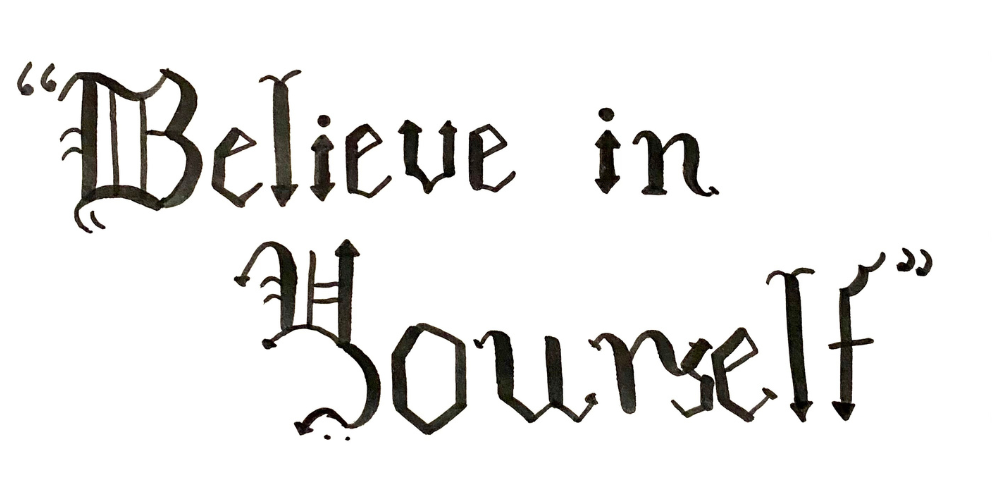 “Believe in
Yourself”